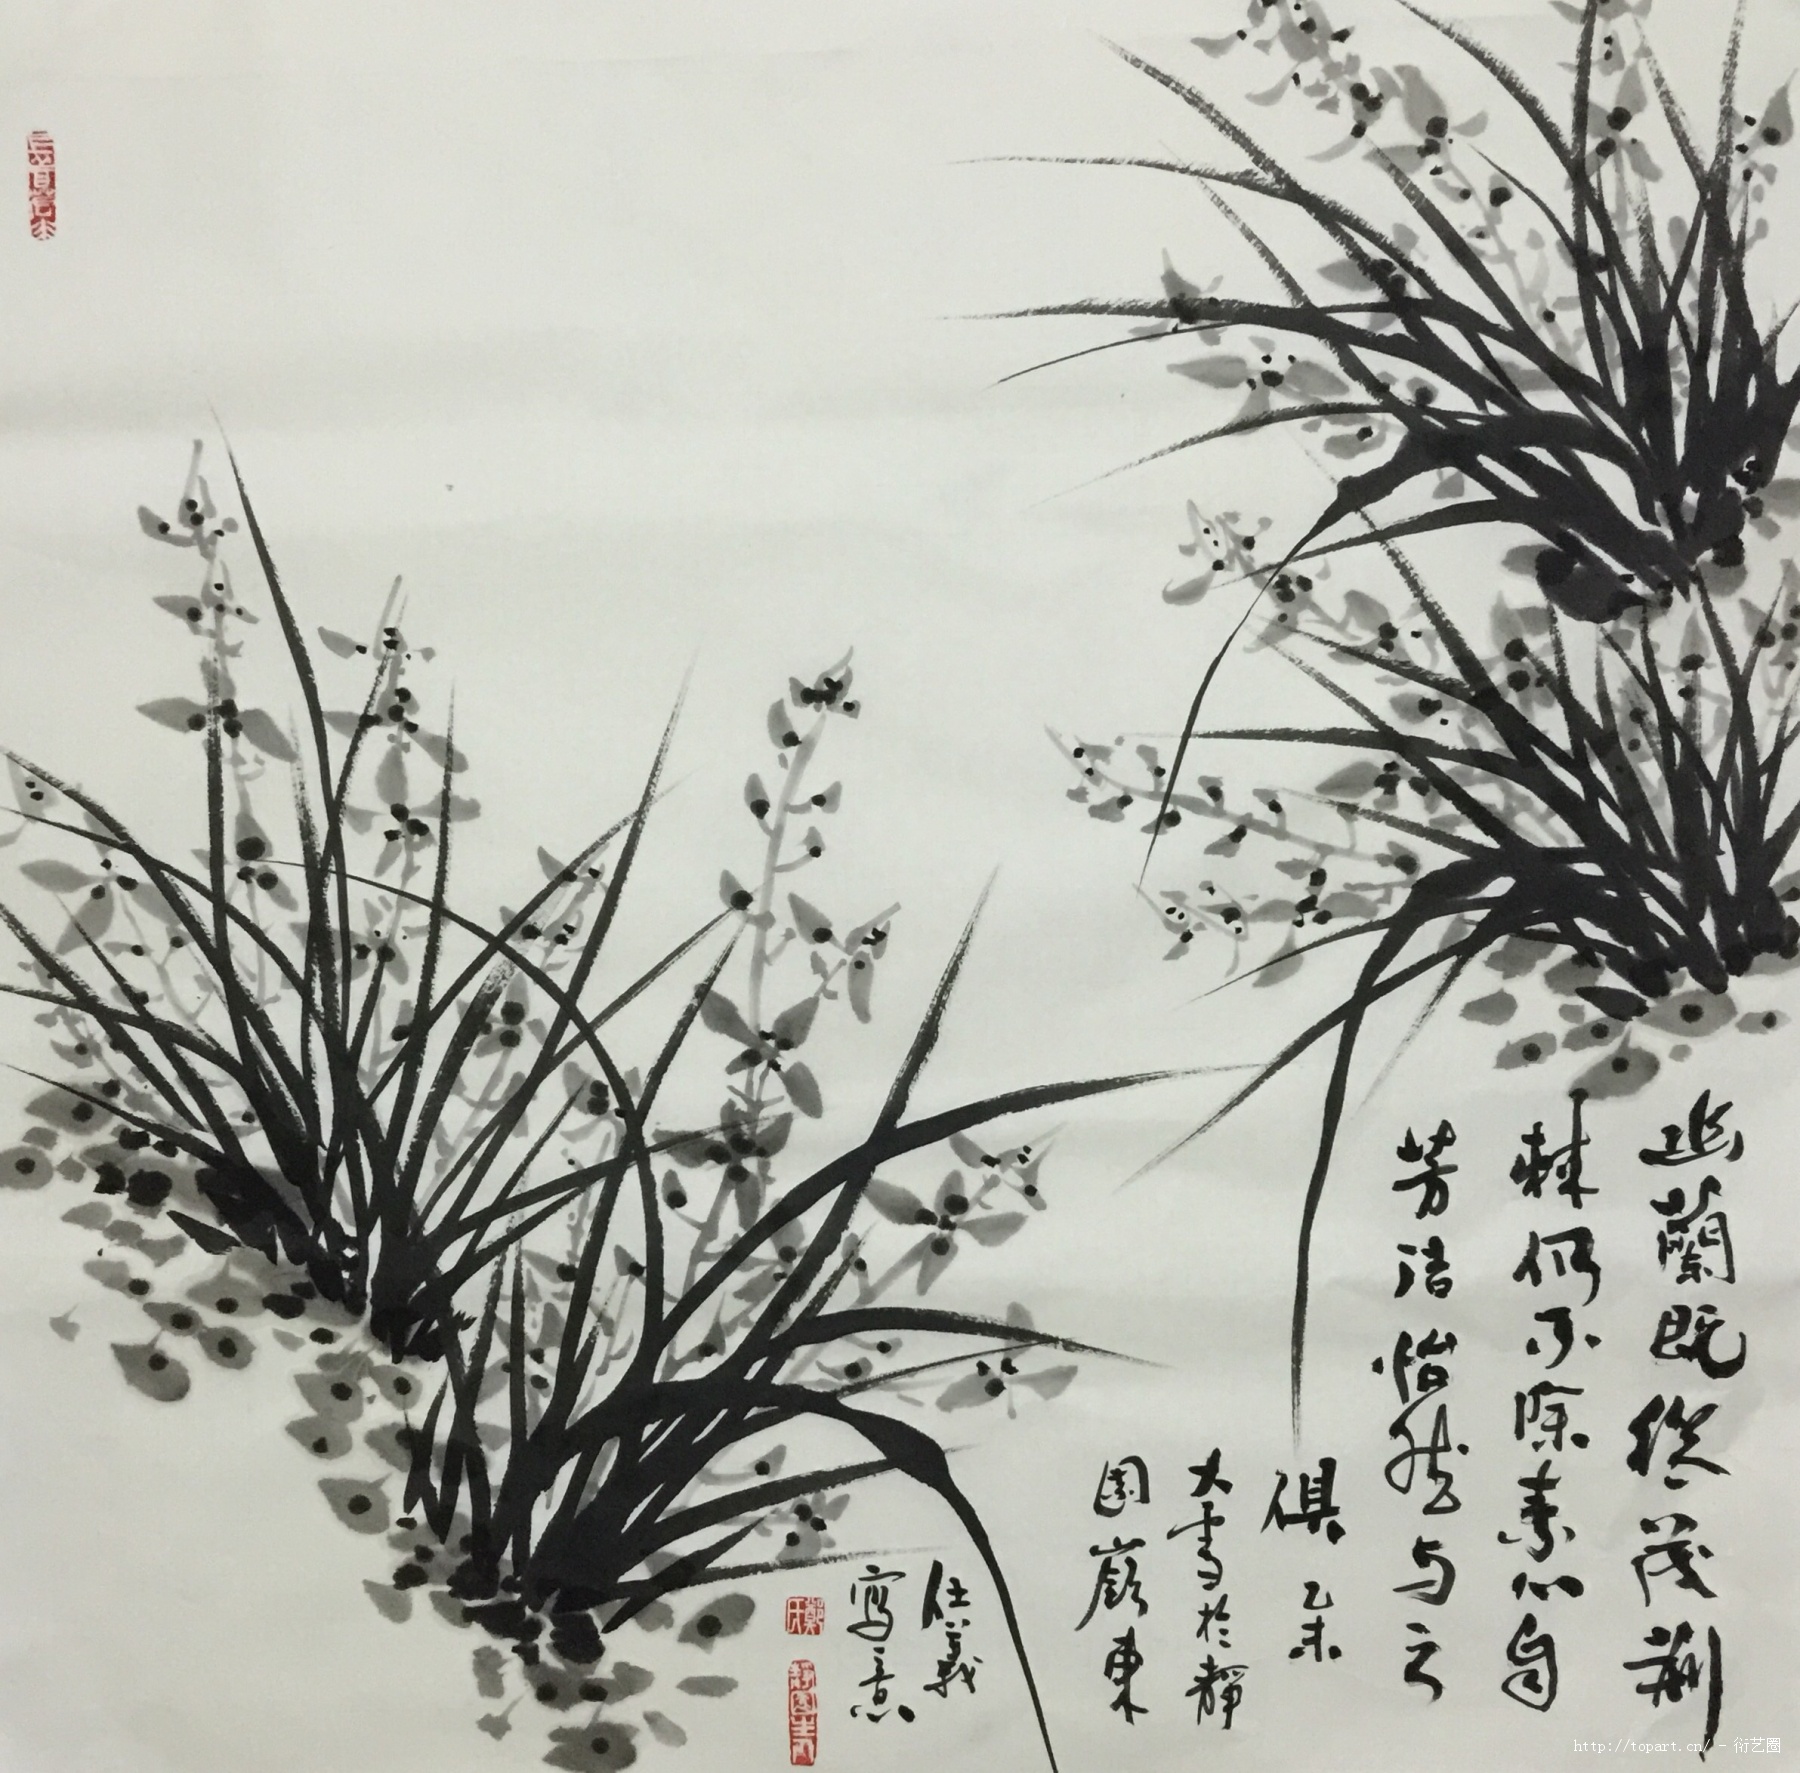 幽蘭既從茂荆
棘何不除素心自
芳洁怡然与之
俱 乙未
大雪於靜
園嚴東
仕義
寫意
鄭氏
http://topart.cn/ - 衍艺圈